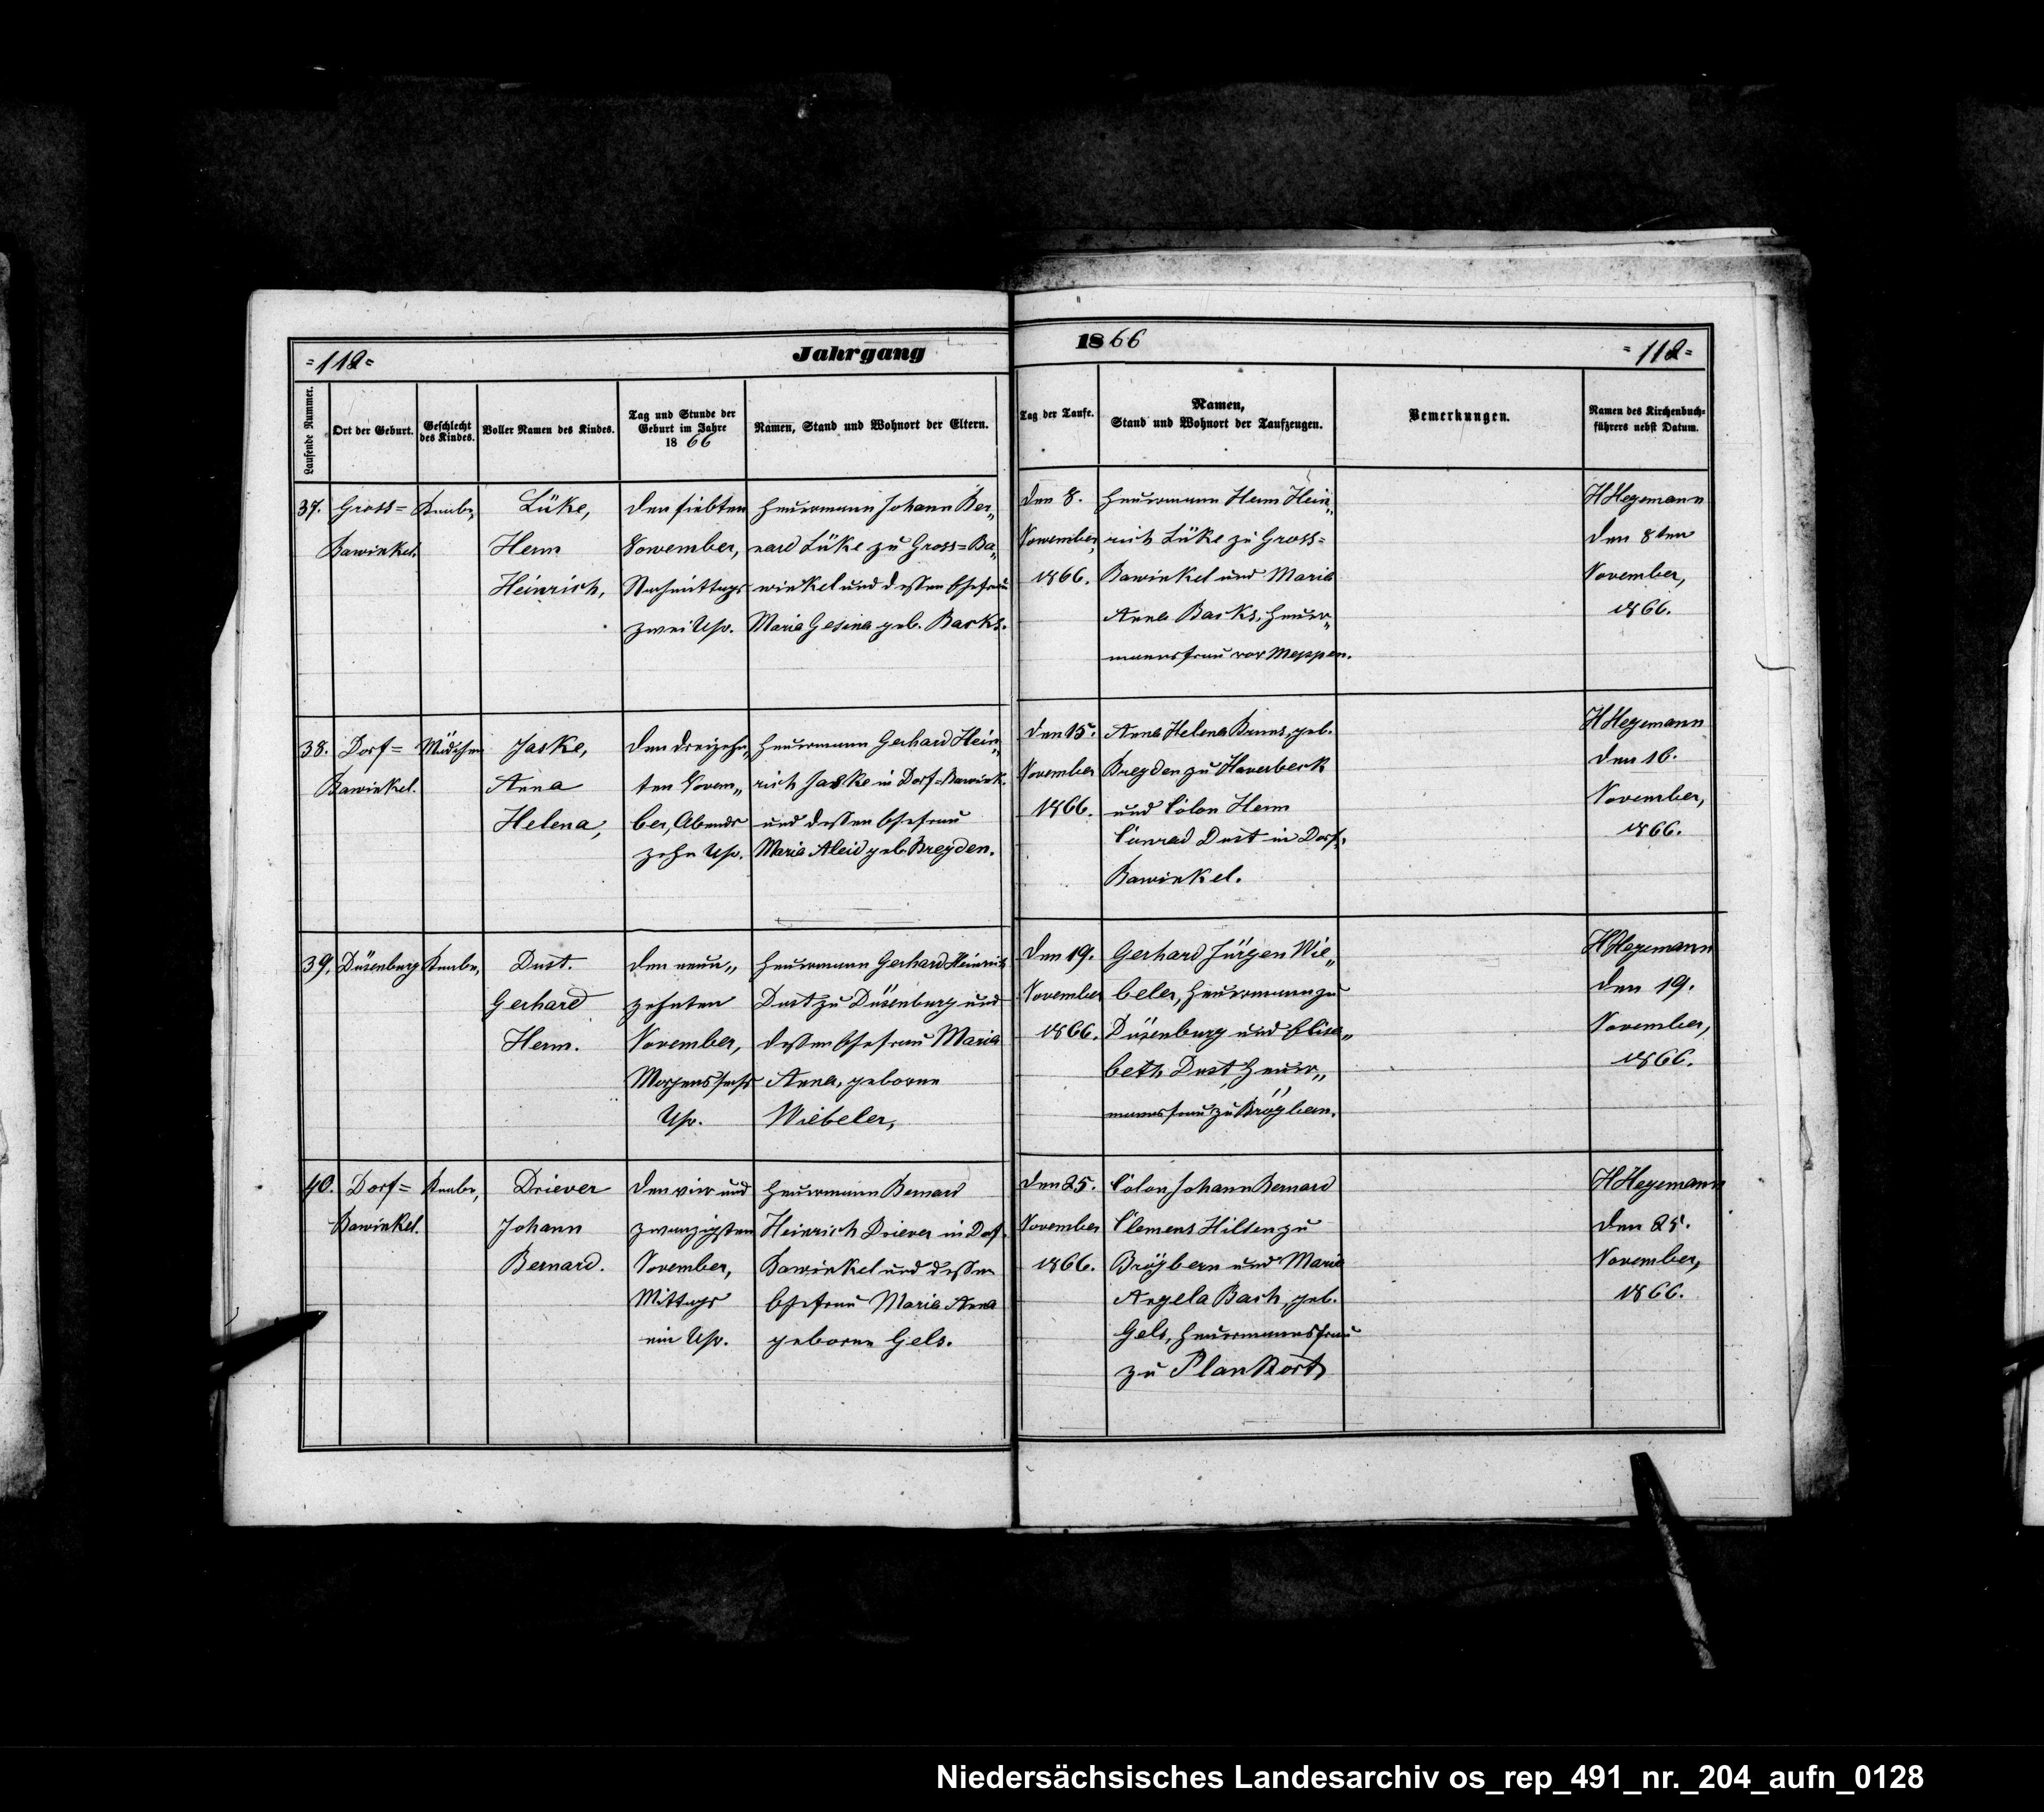 =112= Jahrgang 1866 =112=
Laufende Nummer.
Ort der Geburt.
Geschlecht
des Kindes.
Voller Namen des Kindes.
Tag und Stunde der
Geburt im Jahre
1866
Namen, Stand und Wohnort der Eltern.
Tag der Taufe.
Namen,
Stand und Wohnort der Taufzeugen.
Bemerkungen.
Namen des Kirchenbuch-
führers nebst Datum.
37.
Gross=
Bawinkel.
Knabe,
Lüke,
Herm
Heinrich,
den siebten
November,
Nachmittags
zwei Uhr.
Heuermann Johann Ber„
nard Lüke zu Gross=Ba„
winkel und dessen Ehefrau
Maria Gesina geb. Backs.
den 8.
November,
1866.
Heuermann Herm Hein„
rich Lüke zu Gross=
Bawinkel und Maria
Anna Backs, Heuer„
mannsfrau vor Meppen.
HHegemann
den 8ten
November,
1866.
38.
Dorf=
Bawinkel.
Mädchen
Jaske,
Anna
Helena,
den dreizehn„
ten Novem„
ber, Abends
zehn Uhr.
Heuermann Gerhard Hein„
rich Jaske in Dorf=Bawink.
und dessen Ehefrau
Maria Aleid geb. Breyden.
den 15.
November
1866.
Anna Helena Bruns, geb.
Breyden zu Haverbeck
und Colon Herm
Conrad Dust in Dorf=
Bawinkel.
HHegemann
den 16.
November,
1866.
39.
Düsenburg
Knabe,
Dust.
Gerhard
Herm.
den neun„
zehnten
November,
Morgens sechs
Uhr.
Heuermann Gerhard Heinrich
Dust zu Düsenburg und
dessen Ehefrau Maria
Anna, geborne
Wiebeler,
den 19.
November
1866.
Gerhard Jürgen Wie„
beler, Heuermann zu
Düsenburg und Elisa„
beth Dust Heuer„
mannsfrau zu Brögbern.
HHegemann
den 19.
November,
1866.
40.
Dorf=
Bawinkel.
Knabe,
Driever
Johann
Bernard.
den vier und
zwanzigsten
November,
Mittags
ein Uhr.
Heuermann Bernard
Heinrich Driever in Dorf
Bawinkel und dessen
Ehefrau Maria Anna
geborne Gels.
den 25.
November
1866.
Colon Johann Bernard
Clemens Hilten zu
Brögbern und Maria
Angela Bach, geb.
Gels, Heuermannsfrau
zu Plankort
HHegemann
den 25.
November,
1866.
Niedersächsisches Landesarchiv os_rep_491_nr._204_aufn_0128